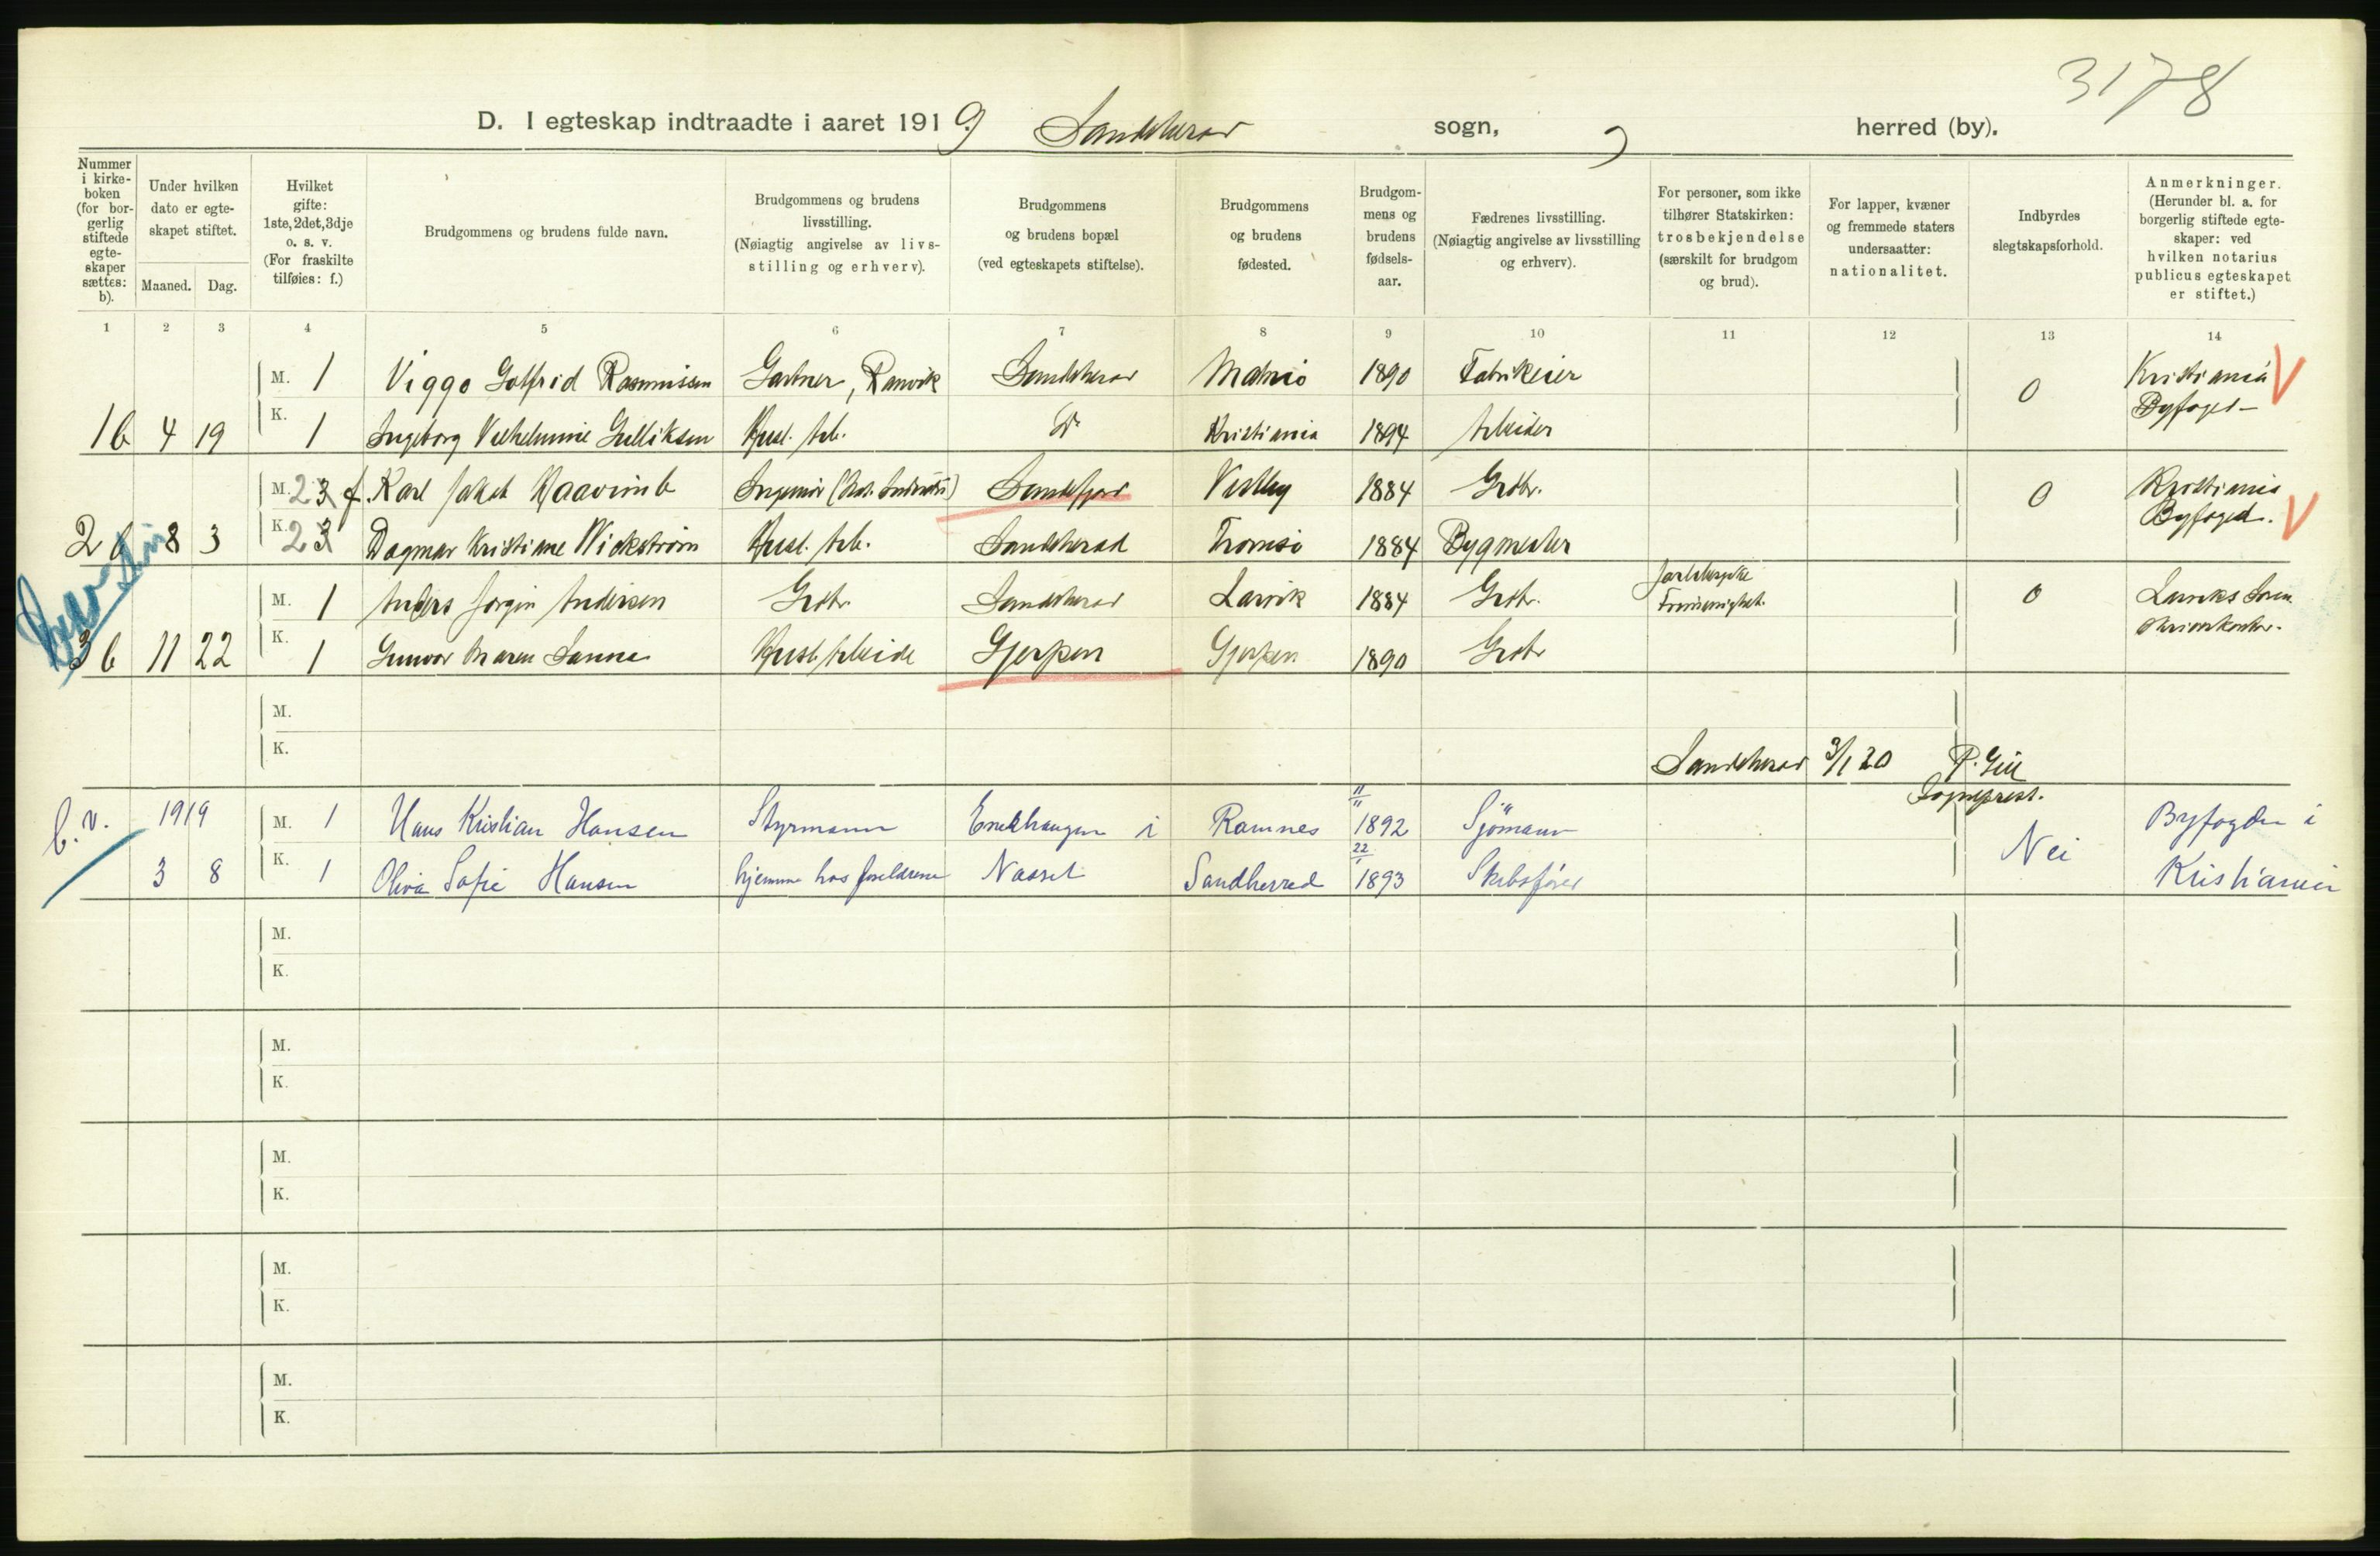 3178
D. I egteskap indtraadte i aaret 1919 Sandeherad sogn, herred (by).
Nummer i kirke-boken (for bor-gerlig stiftede egte-skaper sættes: b).
Under hvilken dato er egte-skapet stiftet.
Maaned. Dag.
Hvilket gifte: 1ste, 2det, 3dje o. s. v. (For fraskilte tilføies: f.)
Brudgommens og brudens fulde navn.
Brudgommens og brudens livsstilling. (Nøiagtig angivelse av livs-stilling og erhverv).
Brudgommens og brudens bopæl (ved egteskapets stiftelse).
Brudgommens og brudens fødested.
Brudgom-mens og brudens fødsels-aar.
Fædrenes livsstilling. (Nøiagtig angivelse av livsstilling og erhverv).
For personer, som ikke tilhører Statskirken: trosbekjendelse (særskilt for brudgom og brud).
For lapper, kvæner og fremmede staters undersaatter: nationalitet.
Indbyrdes slegtskapsforhold.
Anmerkninger. (Herunder bl. a. for borgerlig stiftede egte-skaper: ved hvilken notarius publicus egteskapet er stiftet.)
1 2 3 4 5 6 7 8 9 10 11 12 13 14
M. 1 Viggo Gotfrid Rasmussen Gartner, Ranvik Sandeherad 1890 Fabrikeier 0 Kristiania Byfoged V
1 b 4 19 K. 1 Ingeborg Vilhelmine Gulliksen Husl. Arb. Do Kristiania 1894 Arbeider
M. 2 3 f. Karl Jakob Haavimb Ingeniør Sandefjord Vestby 1884 Grdbr. 0 Kristiania Byfoged. V
2 b 8 3 K. 2 3 Dagmar Kristiane Wickstrøm Husl. Arb. Sandeherad Tromsø 1884 Bygmester
M. 1 Anders Jørgin Andersen Grdbr. Sandeherad Larvik 1884 Grdbr. Jarlsbergske Frimenighet. 0 Larviks Soren skriverkontor.
3 b 11 22 K. 1 Gunvor Maren Sanne Husl. Arbeide Gjerpen Gjerpen 1890 Grdbr
M.
K.
Sandeherad 3/1 20 P. Gill
Sogneprest.
b. v. 1919 M. 1 Hans Kristian Hansen Styrmann i Ramnes 11/11 1892 Sjömann Nei Byfogden i Kristiania
3 8 K. 1 Olivia Sofie Hansen hjemme hos foreldrene Nøtterø Sandherred 22/1 1893 Skibsfører
M.
K.
M.
K.
M.
K.
M.
K.
M.
K.